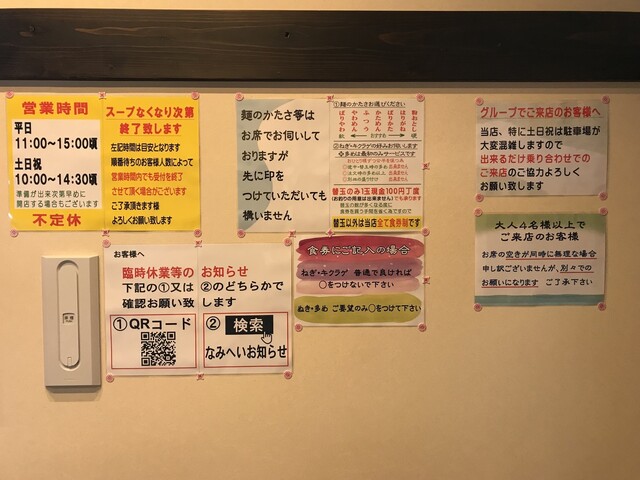 営業時間
平日
11:00〜15:00頃
土日祝
10:00〜14:30頃
準備が出来次第早めに
開店する場合もございます
不定休
スープなくなり次第
終了致します
左記時間は目安となります
順番待ちのお客様人数によって
営業時間内でも受付を終了
させて頂く場合がございます
ご了承頂きます様
よろしくお願い致します
麺のかたさ等は
お席でお伺いして
おりますが
先に印を
つけていただいても
構いません
①麺のかたさお選びください
粉おとし
はりがね
ばりかた
かため
ふつう
やわめん
ばりやわ
軟
おすすめ
硬
②ねぎ・キクラゲの好みお伺いします
替玉のみ1玉現金100円丁度
替玉の数が多くなる度に
食券を買う手間を省く為ですので
替玉以外は当店全て食券制です
グループでご来店のお客様へ
当店、特に土日祝は駐車場が
大変混雑しますので
出来るだけ乗り合わせでの
ご来店のご協力よろしく
お願い致します
大人4名様以上で
ご来店のお客様
お席の空きが同時に無理な場合
申し訳ございませんが、別々での
お願いになります ご了承下さい
お客様へ
臨時休業等のお知らせ
下記の①又は②のどちらかで
確認お願い致します
①QRコード
②検索
なみへいお知らせ
食券にご記入の場合
ねぎ・キクラゲ 普通で良ければ
○をつけないで下さい
ぬき・多め ご要望のみ○を付けて下さい